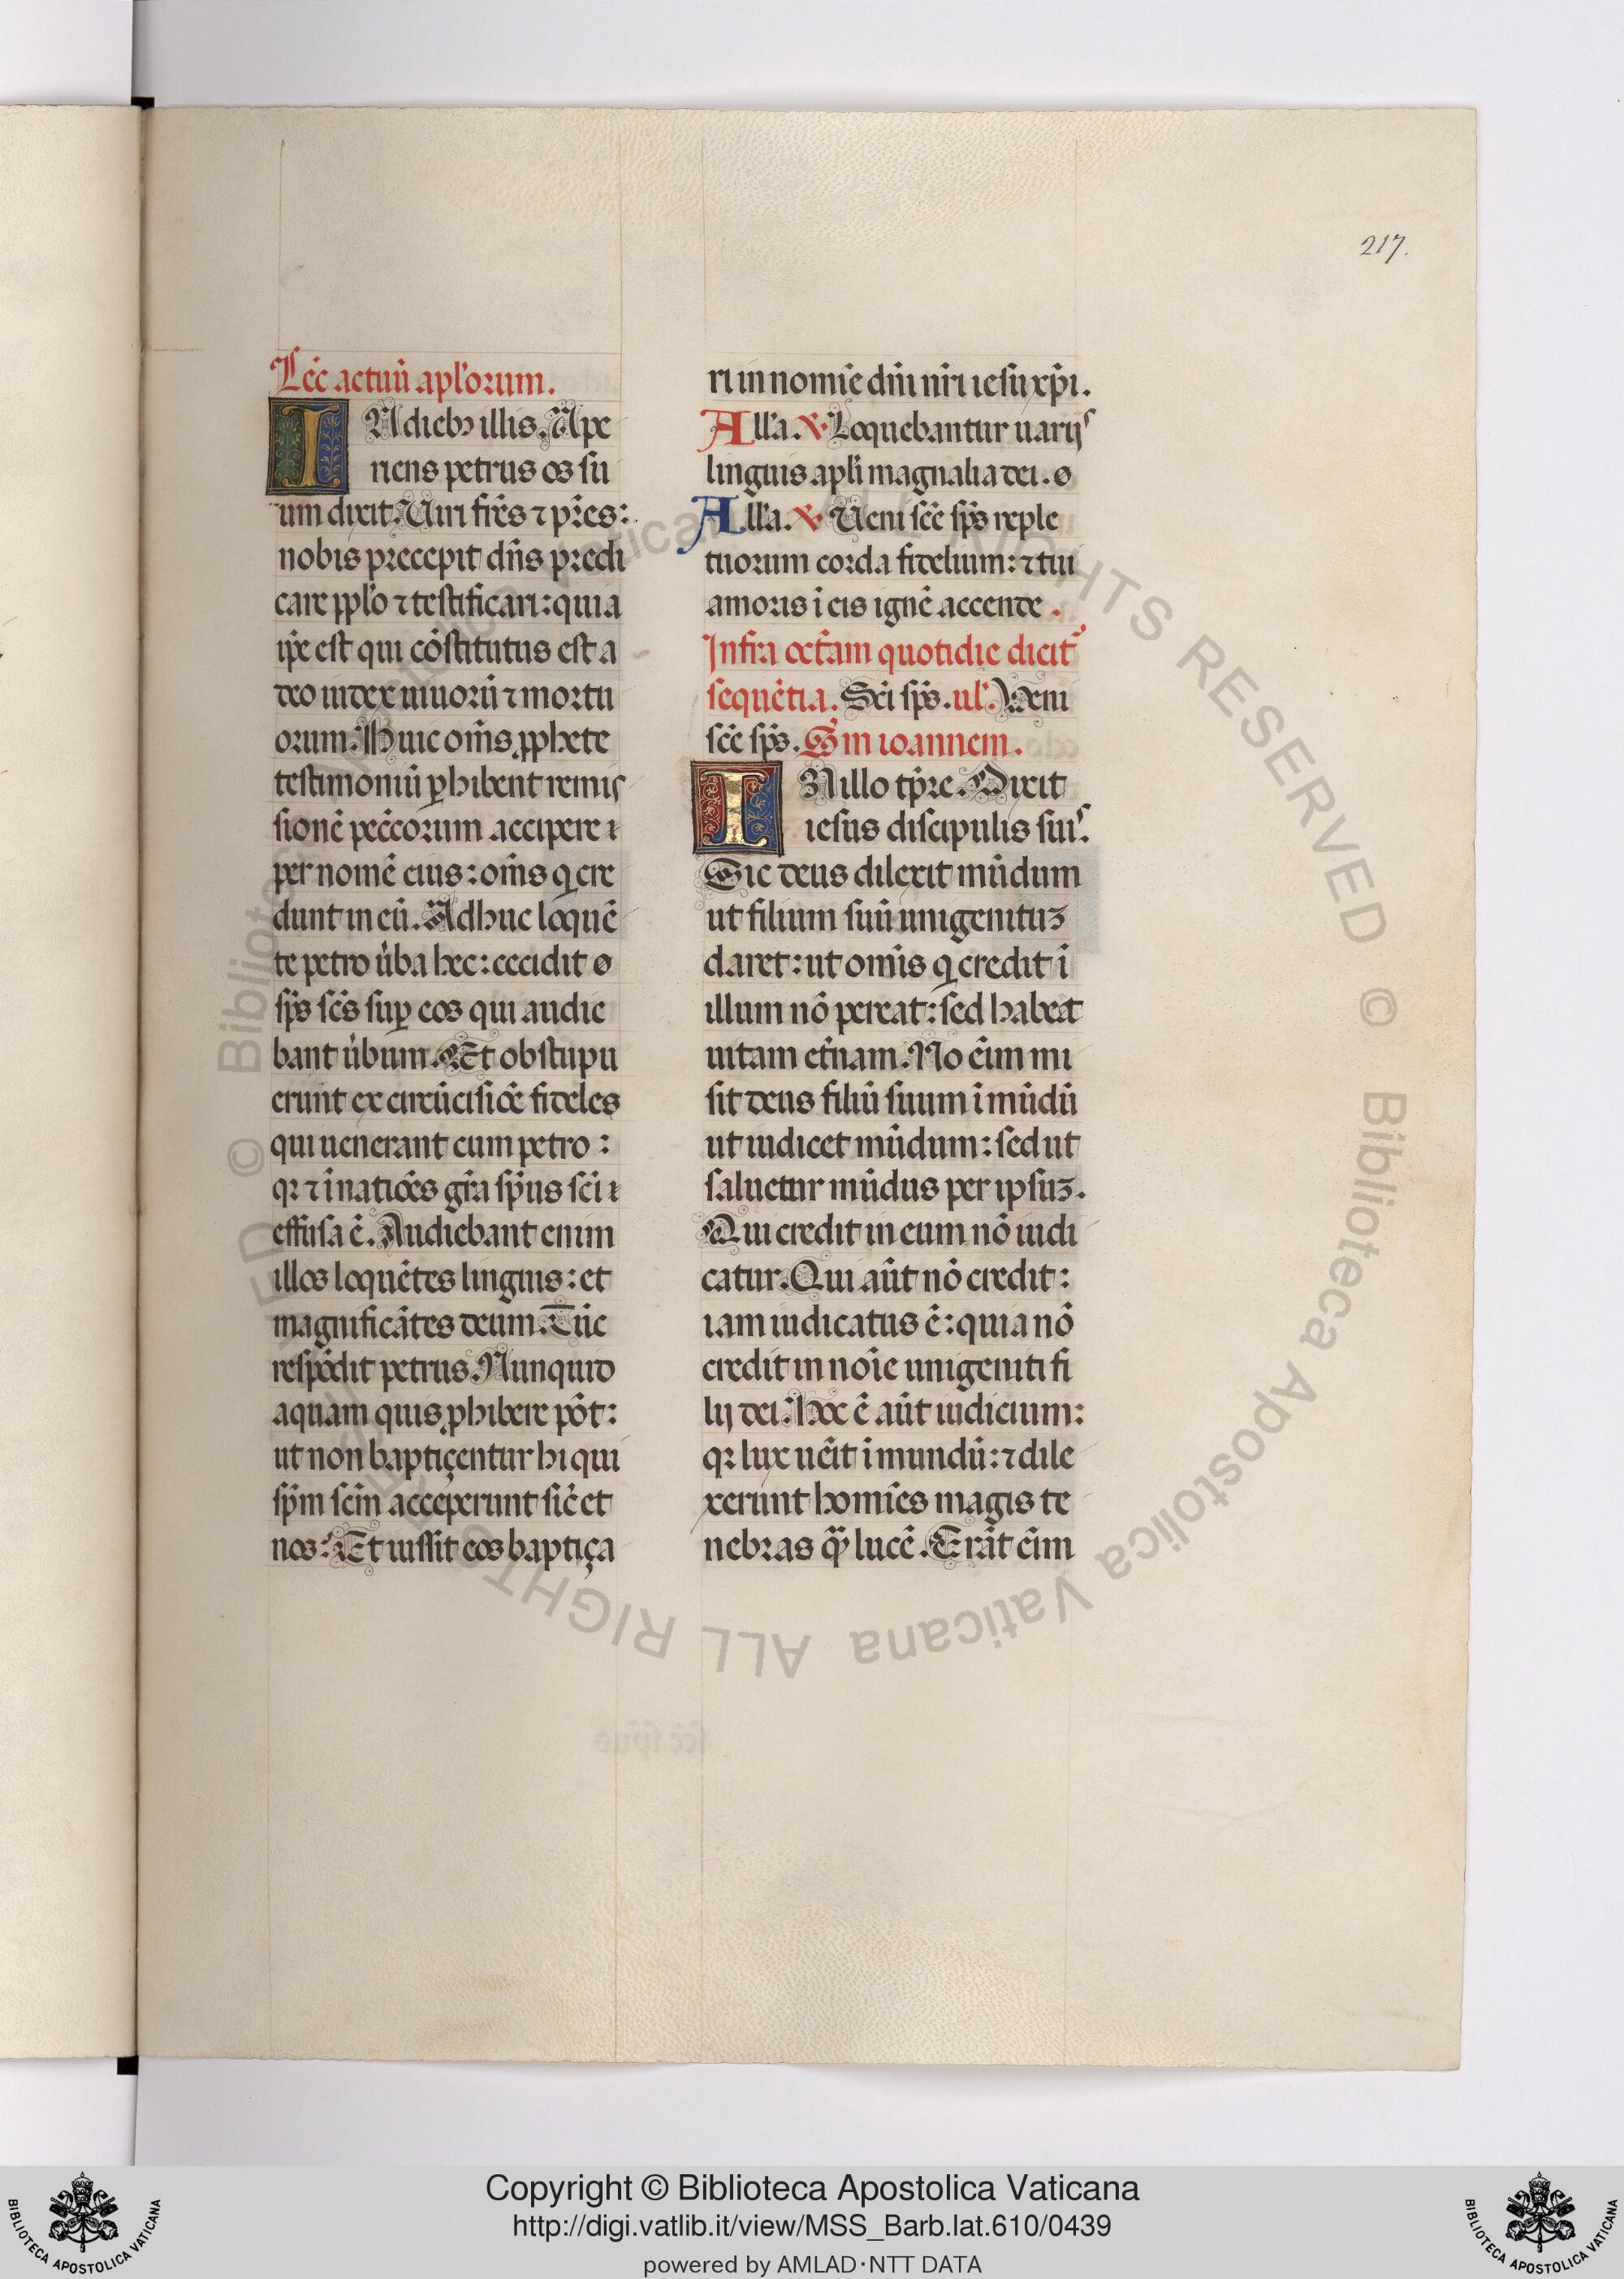 217.
Lec̃ actuũ apl'orum.
IN dieb; illis. Ape
riens petrus os su
um dixit. Uiri fr̃es ⁊ pr̃es:
nobis precepit dñs predi
care ppl'o ⁊ testificari: quia
ip̃e est qui cõstitutus est a
deo iudex uiuorũ ⁊ mortu
orum. Huic om̃s ꝓphete
testimoniũ ꝑhibent remis
sionẽ pecc̃orum accipere
per nomẽ eius: om̃s q̇ cre
dunt in eũ. Adhuc loquẽ
te petro ũba hec: cecidit
sp̃s sc̃s suꝑ eos qui audie
bant ũbum. Et obstupu
erunt ex circũcisiõe fideles
qui uenerant cum petro:
qꝛ ⁊ ĩ natiões gr̃a sp̃us sc̃i
effusa ẽ. Audiebant enim
illos loquẽtes linguis: et
magnificãtes deum. Tũc
respõdit petrus. Nunquid
aquam quis ꝓhibere põt:
ut non baptiçentur hi qui
sp̃m sc̃m acceperunt sic̃ et
nos. Et iussit eos baptiça
ri in nomĩe dñi nr̃i iesu xp̃i.
All'a. ℣. Loquebantur uarijs
linguis apl'i magnalia dei.
All'a. ℣. Ueni sc̃e sp̃s reple
tuorum corda fidelium: ⁊ tui
amoris ĩ eis ignẽ accende.
Infra oct̃am quotidie dicit̃
sequẽtia. Sc̃i sp̃s. ul'. Ueni
sc̃e sp̃s. S̃m ioannem.
IN illo tp̃re. Dixit
iesus discipulis suis.
Sic deus dilexit mũdum
ut filium suũ unigenituꝫ
daret: ut omĩs q̇ credit ĩ
illum nõ pereat: sed habeat
uitam et̃nam. No ẽim mi
sit deus filiũ suum ĩ mũdũ
ut iudicet mũdum: sed ut
saluetur mũdus per ipsuꝫ.
Qui credit in eum nõ iudi
catur. Qui aũt nõ credit:
iam iudicatus ẽ: quia nõ
credit in noĩe unigeniti fi
lij dei. Hoc ẽ aũt iudicium:
qꝛ lux uẽit ĩ mundũ: ⁊ dile
xerunt homĩes magis te
nebras q̃ lucẽ. Erãt ẽim
© Biblioteca Apostolica Vaticana ALL RIGHTS RESERVED
Copyright © Biblioteca Apostolica Vaticana
http://digi.vatlib.it/view/MSS_Barb.lat.610/0439
powered by AMLAD·NTT DATA
BIBLIOTECA APOSTOLICA VATICANA
BIBLIOTECA APOSTOLICA VATICANA